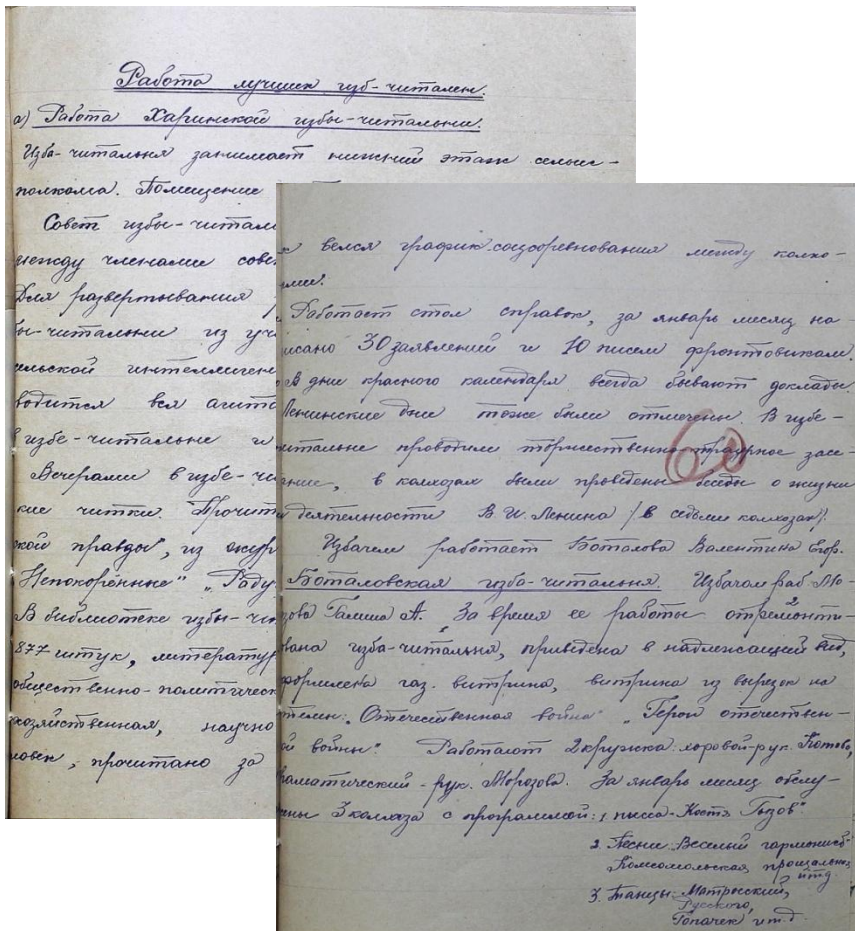 Работа лучших изб-читален.
а) Работа Харинской избы-читальни.
Изба-читальня занимает нижний этаж сельис-
полкома. Помещение
Совет избы-читаль
между членами сове
Для развертывания
бы-читальни из уч
ельской интеллиген
водится вся агит
в избе-читальне и
Вечерами в избе-чи
кие читки. Прочит
ской правды", из журн
Непокорённые" "Раду
В библиотеке избы-чи
877 штук, литератур
общественно-политическ
хозяйственная, научно
ловек, прочитано за
велся график соцсоревнования между колхо-
ами.
Работает стол справок, за январь месяц на-
писано 30 заявлений и 10 писем фронтовикам.
В дни красного календаря всегда бывают доклады.
Ленинские дни тоже были отмечены. В избе-
читальне проводили торжественно-траурное засе-
ание, в колхозах были проведены беседы о жизни
деятельности В.И. Ленина /в седьми колхозах/.
60
Избачем работает Боталова Валентина Егор.
Боталовская изба-читальня. Избачом раб. Мо-
розова Галина А. За время ее работы отремонти-
вана изба-читальня, приведена в надлежащий вид,
формлена газ. витрина, витрина из вырезок на
"Отечественная война" "Герои отечествен-
ой войны". Работают 2 кружка: хоровой-рук. Котова,
раматический-рук. Морозова. За январь месяц обслу-
ены 3 колхоза с программой: 1. пьеса-Костя
2. Песни: Веселый гармонист
Комсомольская прощальная
итд.
3. Танцы: Матросский,
Русского,
Гопачек итд.